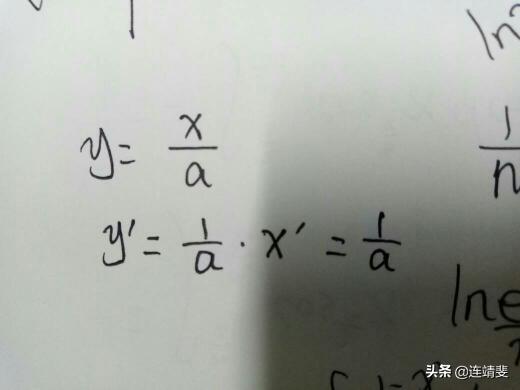 y = x/a
y' = 1/a · x' = 1/a
1/n
ln
头条 @连靖斐